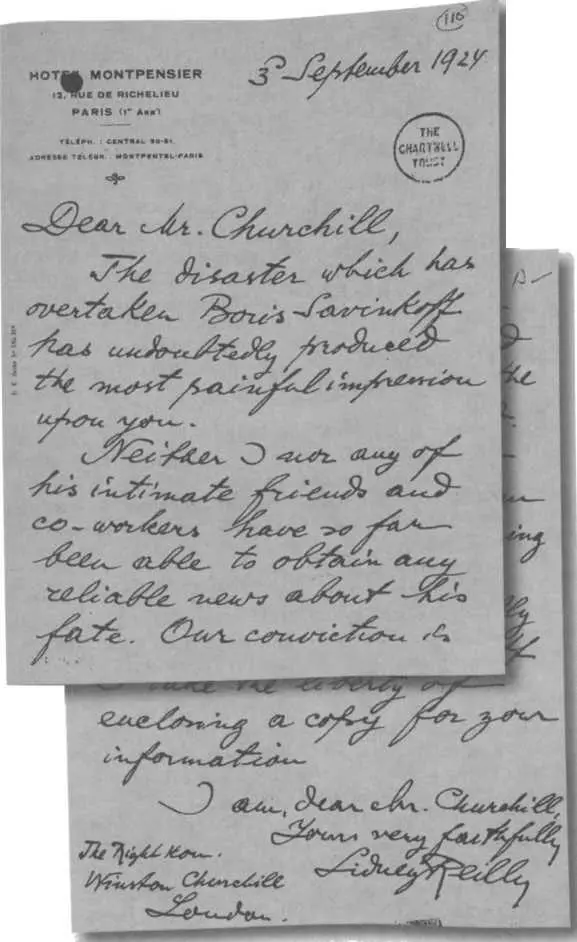 110
3 September 1924
HOTEL MONTPENSIER
12, RUE DE RICHELIEU
PARIS (1er Arrt)
TÉLÉPH. : CENTRAL
ADRESSE TÉLÉGR. MONTPENTEL-PARIS
THE
CHARTWELL
TRUST
Dear Mr. Churchill,
The disaster which has
overtaken Boris Savinkoff
has undoubtedly produced
the most painful impression
upon you.
Neither I nor any of
his intimate friends and
co-workers have so far
been able to obtain any
reliable news about his
fate. Our conviction is
he
ing
ly
I take the liberty of
enclosing a copy for your
information
I am, dear Mr. Churchill,
Yours very faithfully
Sidney Reilly
The Right Hon.
Winston Churchill
London.